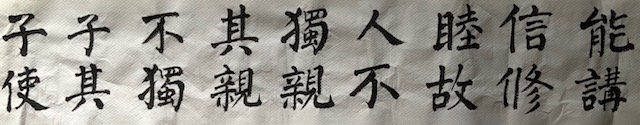 能講
信修
睦故
人不
獨親
其親
不獨
子其
子使